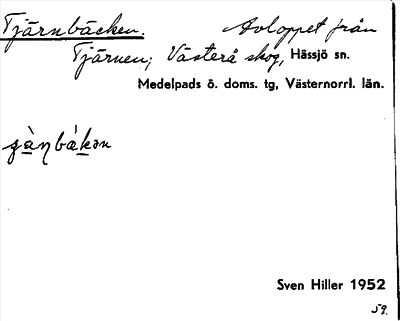 Tjärnbäcken. Avloppet från
Tjärnen; Västerå skog, Hässjö sn.
Medelpads ö. doms. tg, Västernorrl. län.
Sven Hiller 1952
59.